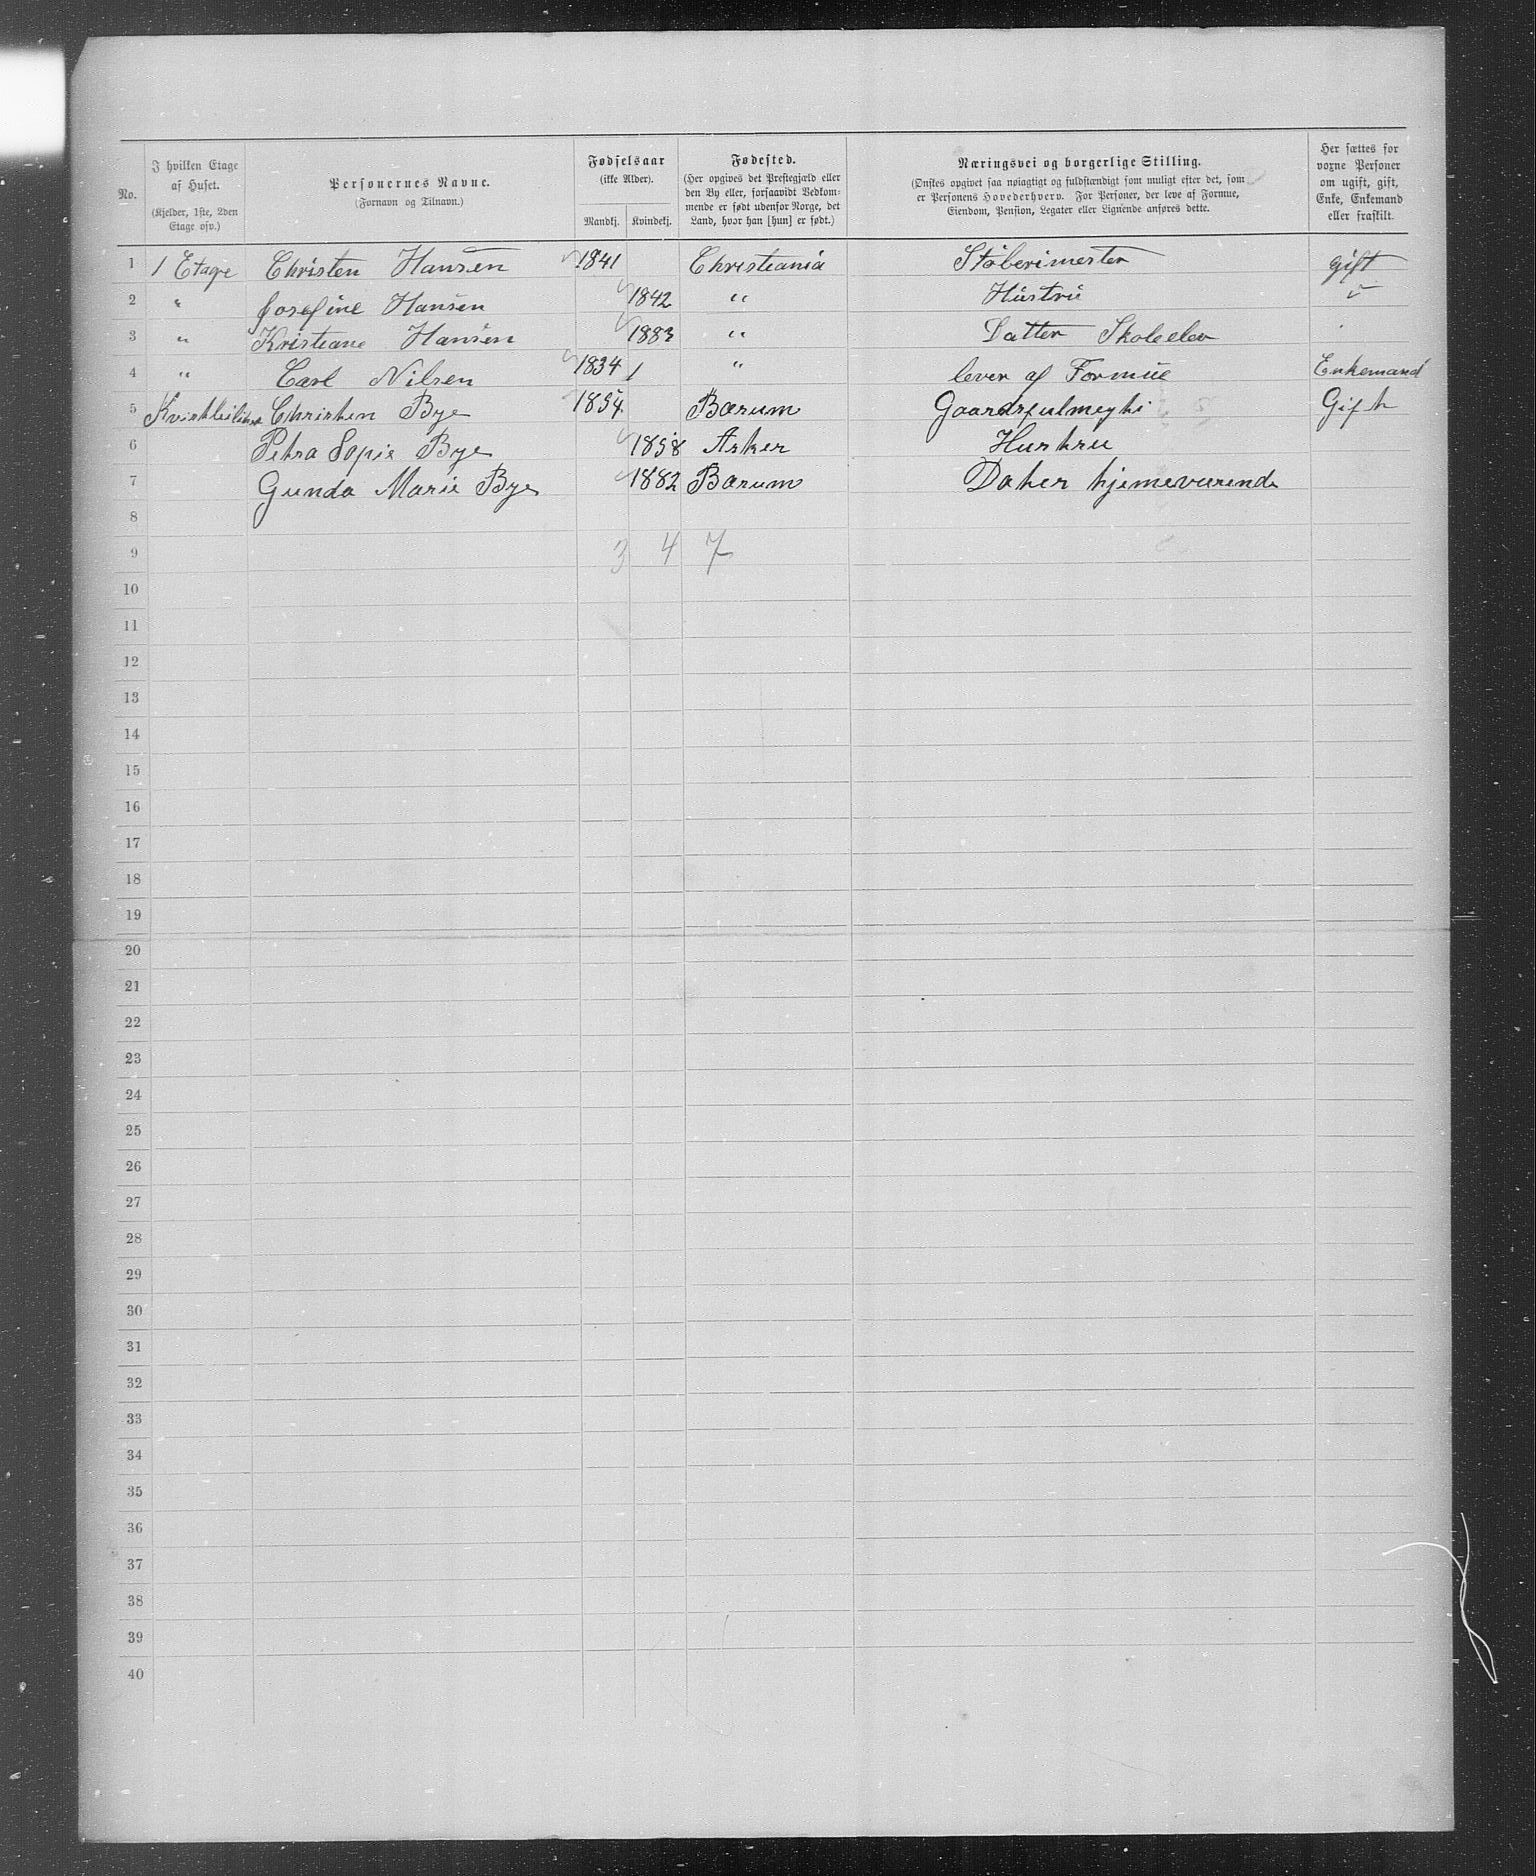 No.
I hvilken Etage af Huset. (Kjelder, 1ste, 2den Etage osv.)
Personernes Navne. (Fornavn og Tilnavn.)
Fødselsaar (ikke Alder). Mandkj. Kvindekj.
Fødested. (Her opgives det Prestegjæld eller den By eller, forsaavidt Vedkommende er født udenfor Norge, det Land, hvor han [hun] er født.)
Næringsvei og borgerlige Stilling. (Ønskes opgivet saa nøiagtigt og fuldstændigt som muligt efter det, som er Personens Hovederhverv. For Personer, der leve af Formue, Eiendom, Pension, Legater eller Lignende anføres dette.)
Her sættes for voxne Personer om ugift, gift, Enke, Enkemand eller fraskilt.
1 1 Etage Christen Hansen 1841 Christiania Støberimester gift
2 " Josefine Hansen 1842 " Hustru
3 " Kristiane Hansen 1883 " Datter Skoleelev
4 " Carl Nilsen 1834 " lever af Formue Enkemand
5 Christen Bye 1854 Bærum Gift
6 Petra Sopie Bye 1858 Asker Hustru
7 Gunda Marie Bye 1882 Bærum Dater hjemeværende
8
9 3 4 7
10
11
12
13
14
15
16
17
18
19
20
21
22
23
24
25
26
27
28
29
30
31
32
33
34
35
36
37
38
39
40